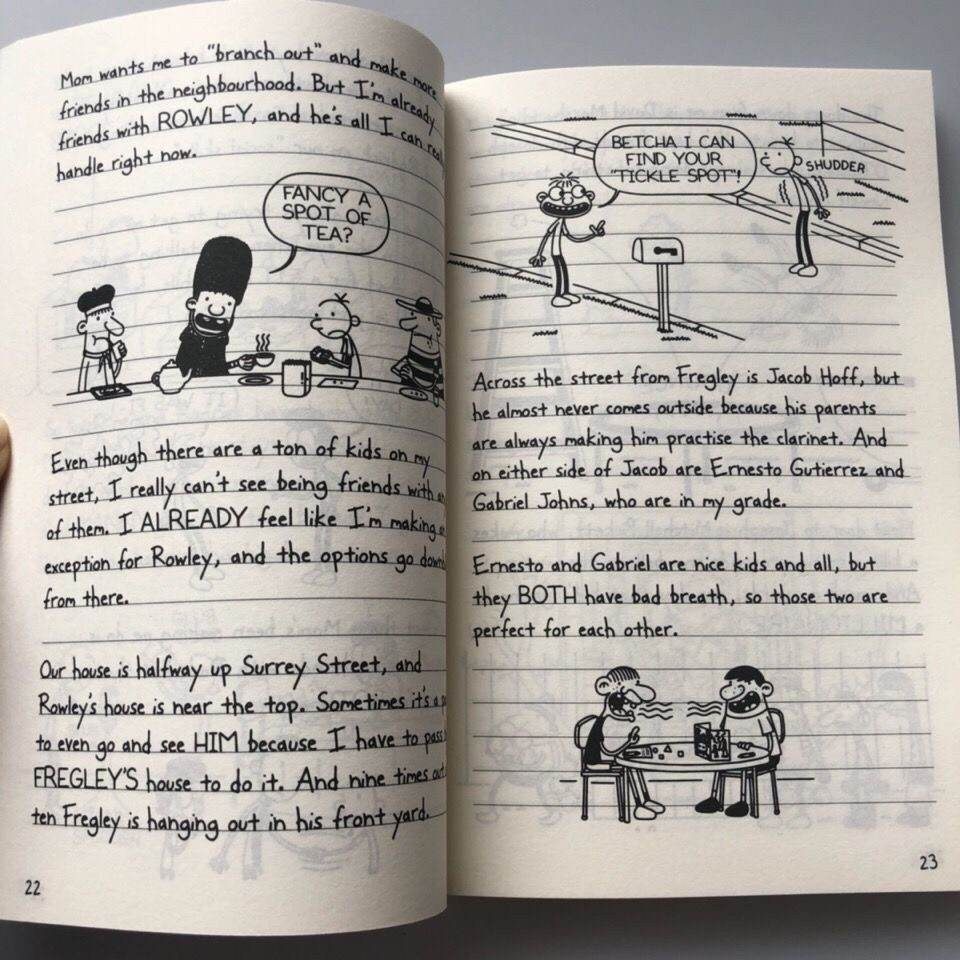 Mom wants me to "branch out" and make more
friends in the neighbourhood. But I'm already
friends with ROWLEY, and he's all I can
handle right now.
FANCY A
SPOT OF
TEA?
Even though there are a ton of kids on my
street, I really can't see being friends with
of them. I ALREADY feel like I'm making
exception for Rowley, and the options go
from there.
Our house is halfway up Surrey Street, and
Rowley's house is near the top. Sometimes it's a
to even go and see HIM because I have to pass
FREGLEY'S house to do it. And nine times
ten Fregley is hanging out in his front yard.
22
BETCHA I CAN
FIND YOUR
"TICKLE SPOT"!
SHUDDER
Across the street from Fregley is Jacob Hoff, but
he almost never comes outside because his parents
are always making him practise the clarinet. And
on either side of Jacob are Ernesto Gutierrez and
Gabriel Johns, who are in my grade.
Ernesto and Gabriel are nice kids and all, but
they BOTH have bad breath, so those two are
perfect for each other.
23